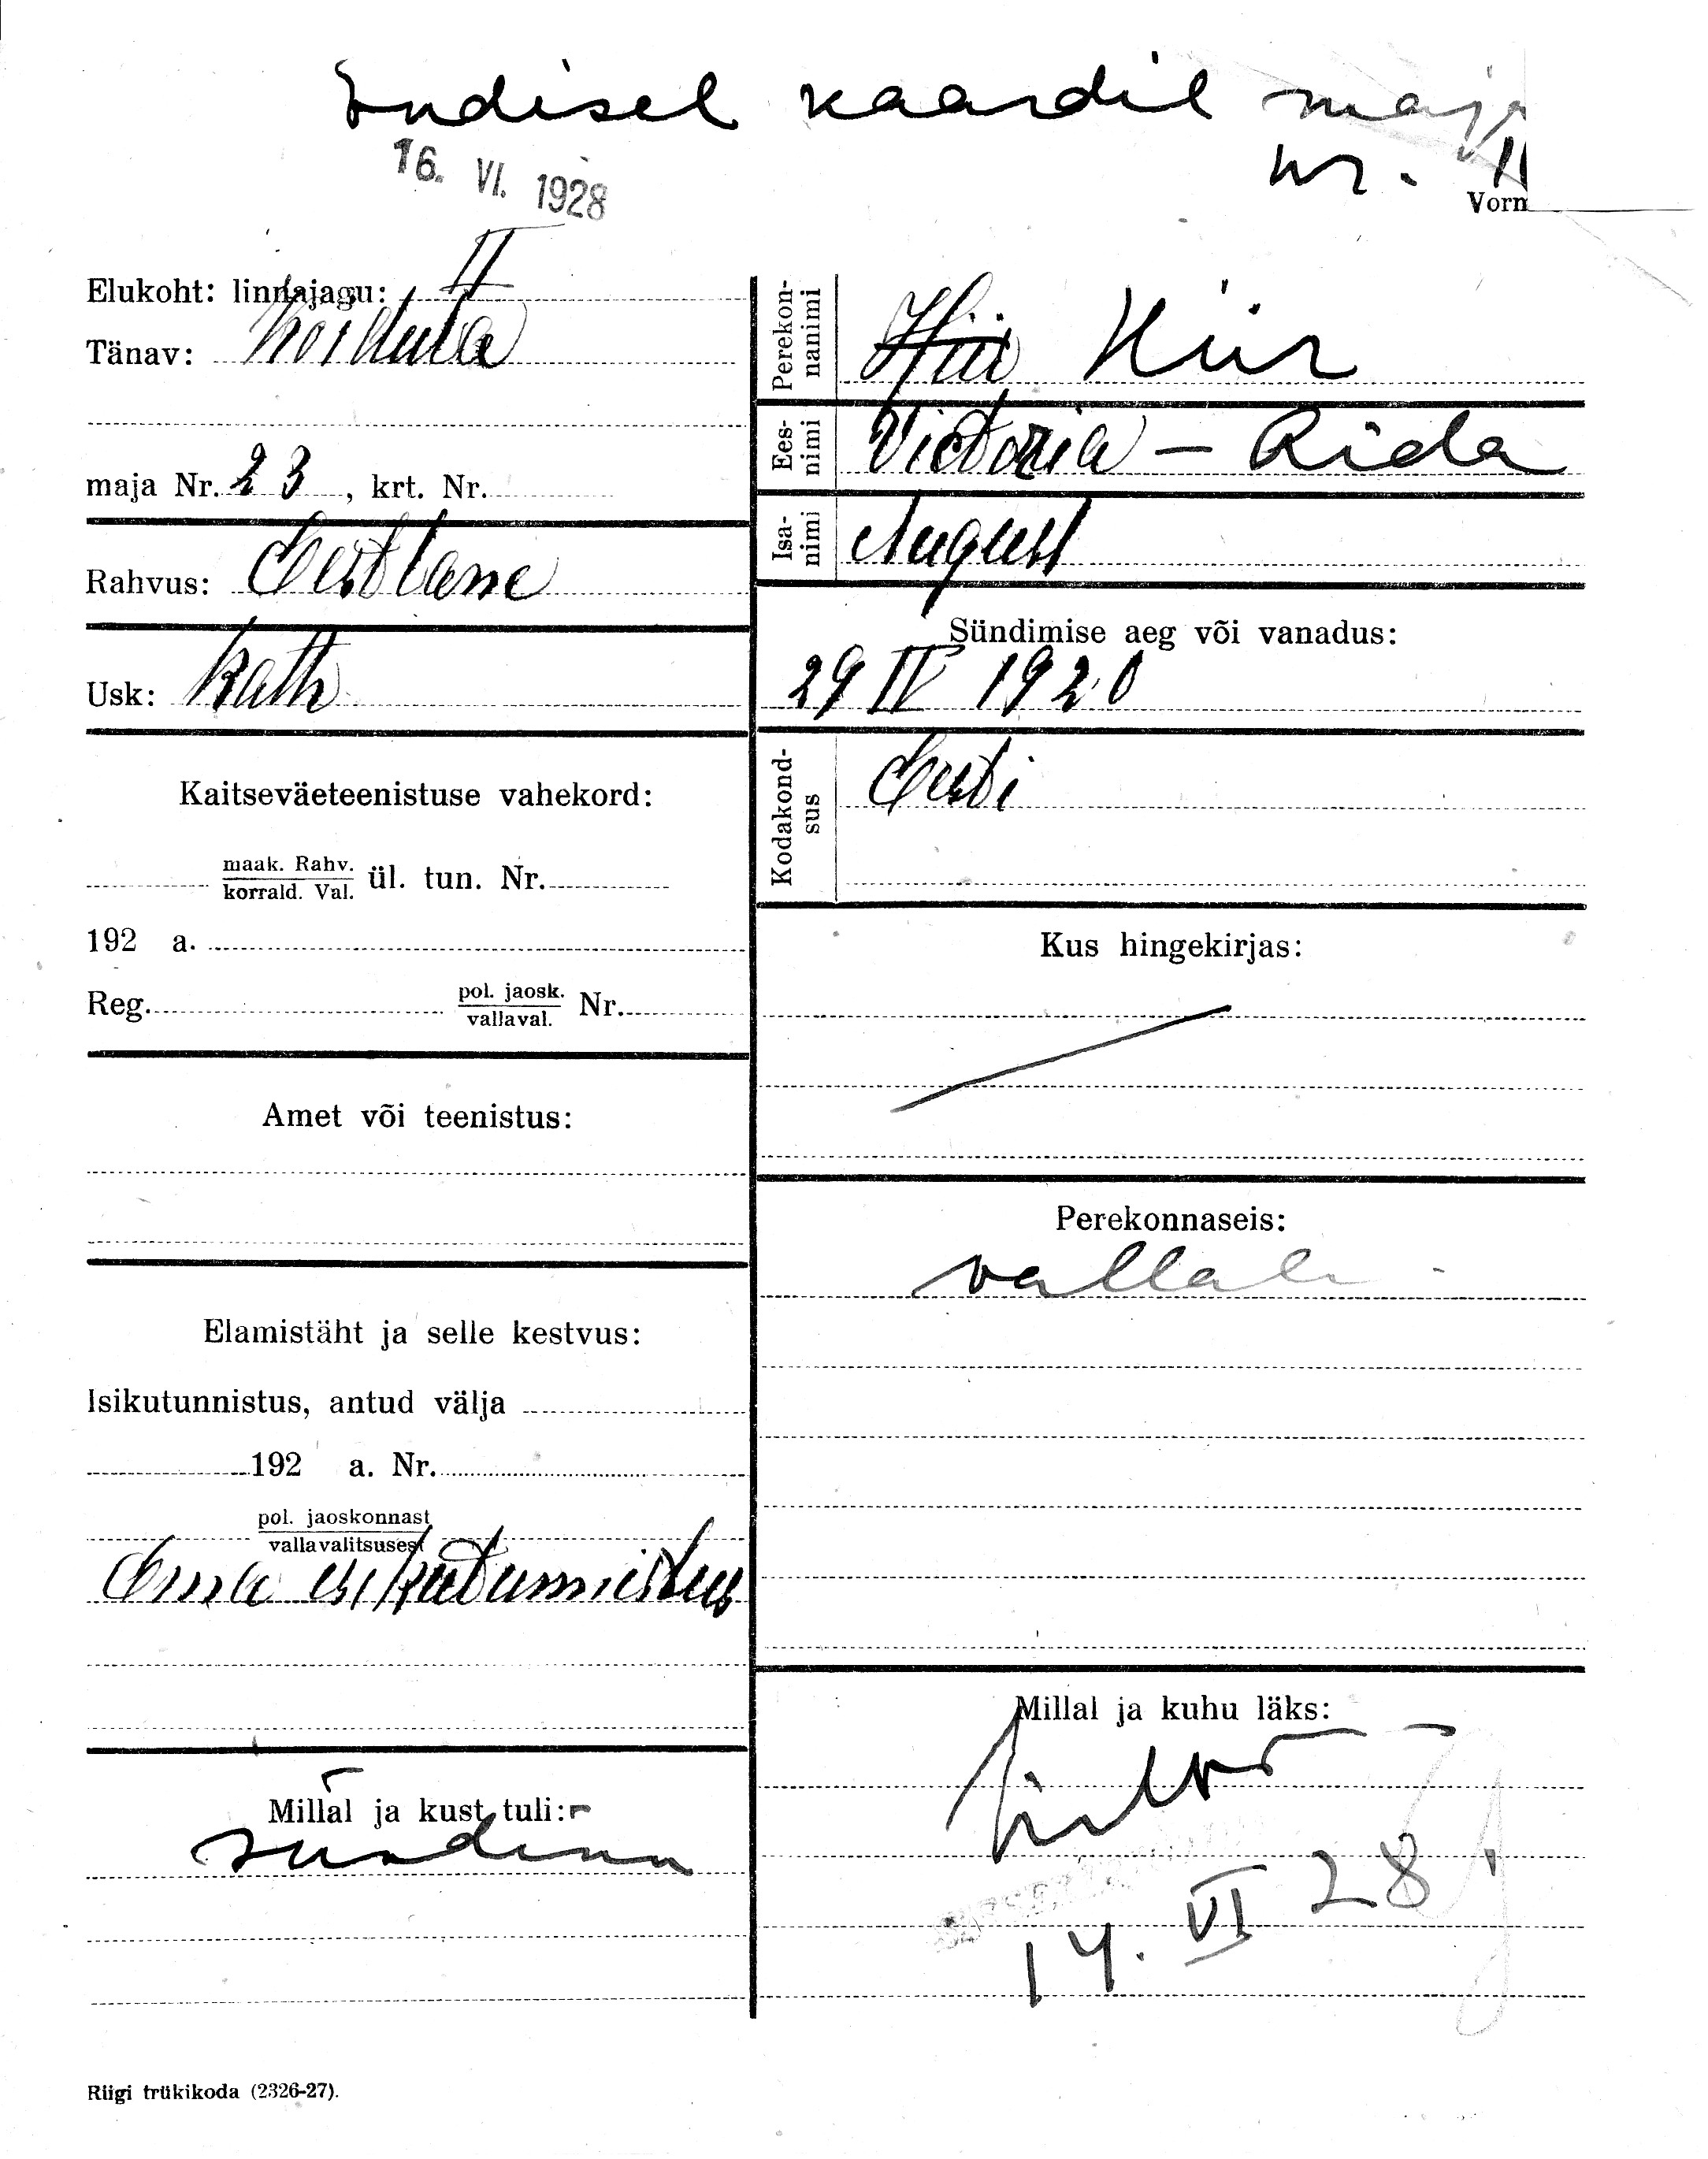 Endisel kaardil maja
nr. 11
16. VI. 1928
Vorm
Elukoht: linnajagu: II
Tänav: Koidula
maja Nr. 23, krt. Nr.
Rahvus: Eestlane
Usk: Kath
Kaitseväeteenistuse vahekord:
maak. Rahv.
korrald. Val. ül. tun. Nr.
192 a.
Reg. pol. jaosk.
vallaval. Nr.
Amet või teenistus:
Elamistäht ja selle kestvus:
Isikutunnistus, antud välja
192 a. Nr.
pol. jaoskonnast
vallavalitsusest
Ema isikutunnistus
Millal ja kust tuli:
sündinu
Perekon-
nanimi Hiir
Ees-
nimi Victoria - Aida
Isa-
nimi August
Sündimise aeg või vanadus:
29 IV 1920
Kodakond-
sus Eesti
Kus hingekirjas:
Perekonnaseis:
vallal.
Millal ja kuhu läks:
14. VI 28.
Riigi trükikoda (2326-27).